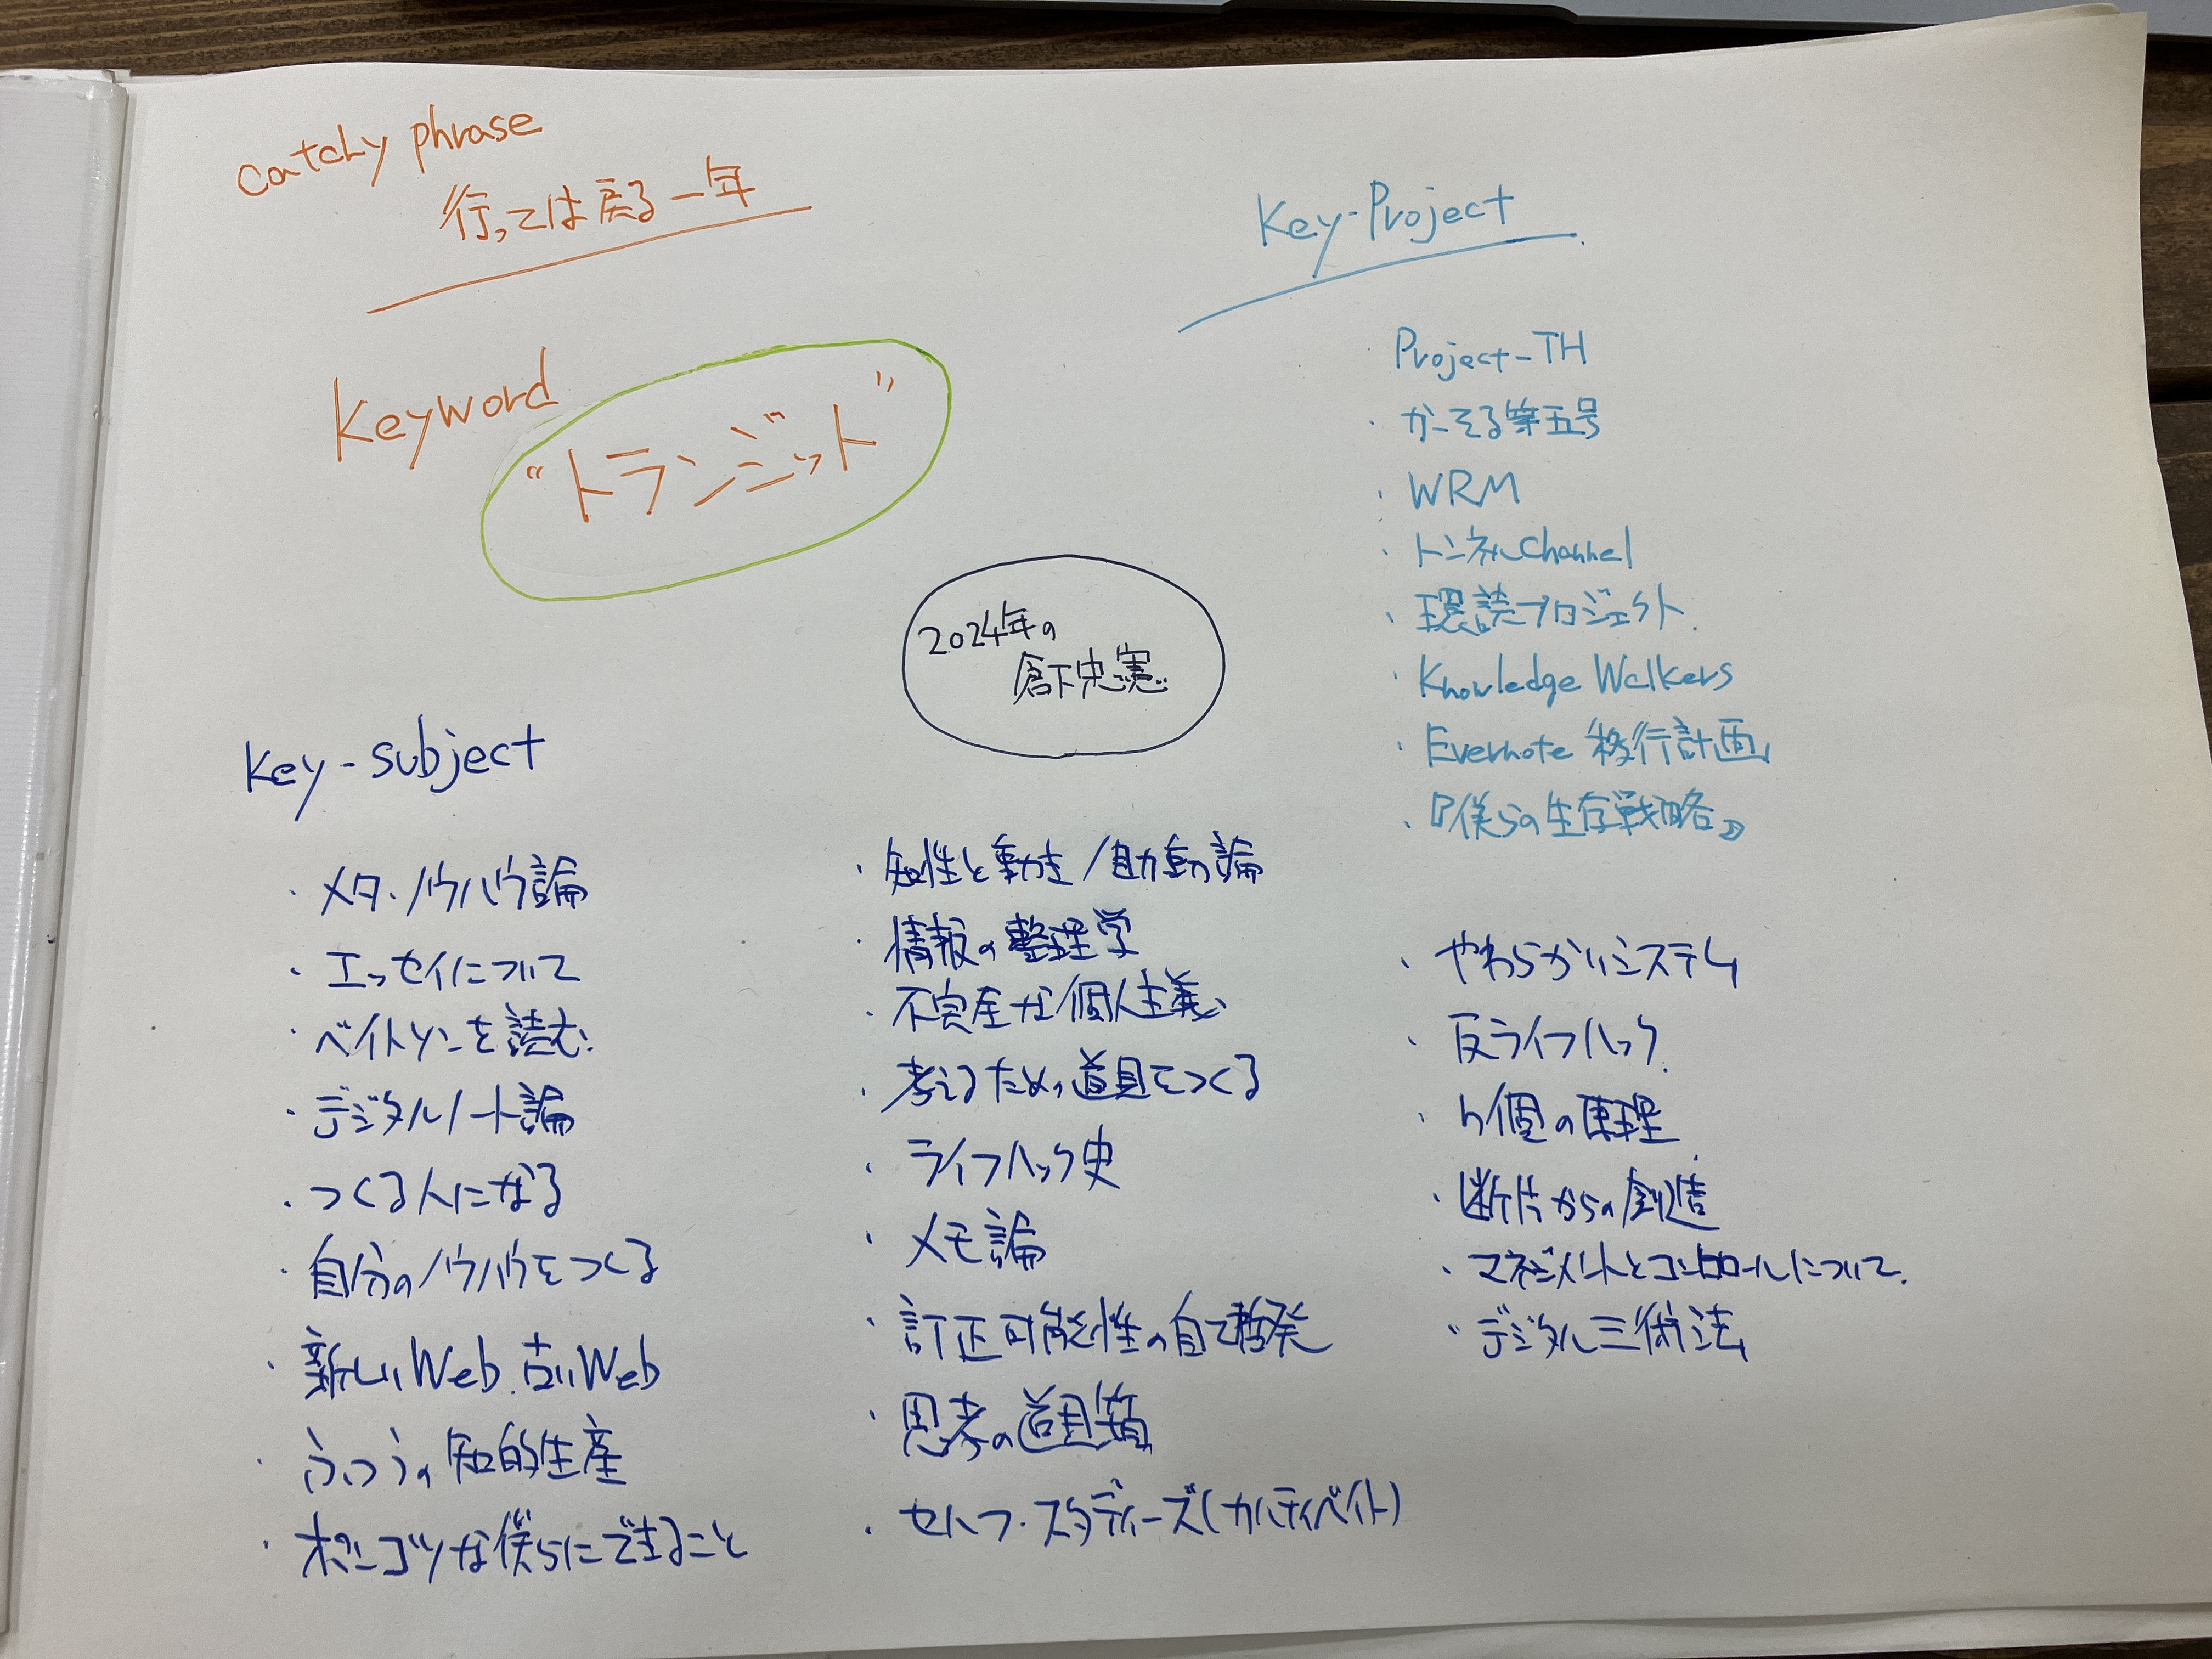 catchy phrase
行っては戻る一年
Keyword
"トランジット"
Key-Project
Project-TH
・かーそる第五号
・WRM
・トンネルChannel
・環読プロジェクト.
・Knowledge Walkers
・Evernote 移行計画
・『僕らの生存戦略』
2024年の
倉下忠憲
Key-subject
・メタ・ノウハウ論
・エッセイについて
・ベイトソンを読む
・デジタルノート論
・つくる人になる
・自分のノウハウをつくる
・新しいWeb、古いWeb
・ふつうの知的生産
・ポンコツな僕らにできること
・知性と動き/自力動論
・情報の整理学
・不完全な個人主義
・考えるための道具をつくる
・ライフハック史
・メモ論
・訂正可能性の自己啓発
・思考の道具箱
・セルフ・スタディーズ(カルティベイト)
・やわらかいシステム
・反ライフハック
・n個の原理
・断片からの創造
・マネジメントとコントロールについて.
・デジタル三術法